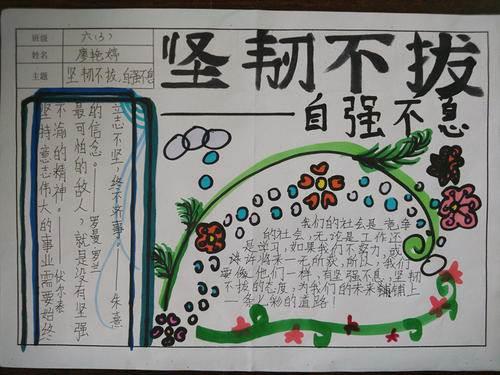 班级 六(3)
姓名 廖艳婷
主题 坚韧不拔,自强不息
坚韧不拔
——自强不息
立志不坚,终不济事。——朱熹
最可怕的敌人,就是没有坚强
的信念。——罗曼·罗兰
坚持意志伟大的事业需要始终
不渝的精神。——伏尔泰
我们的社会是竞争
的社会,无论是工作还
是学习,如果我们不努力,或
许许将来一无所获,所以,我们
要像他们一样,有坚强不息,坚韧
不拔的态度,为我们的未来铺铺上
一条人物的道路!